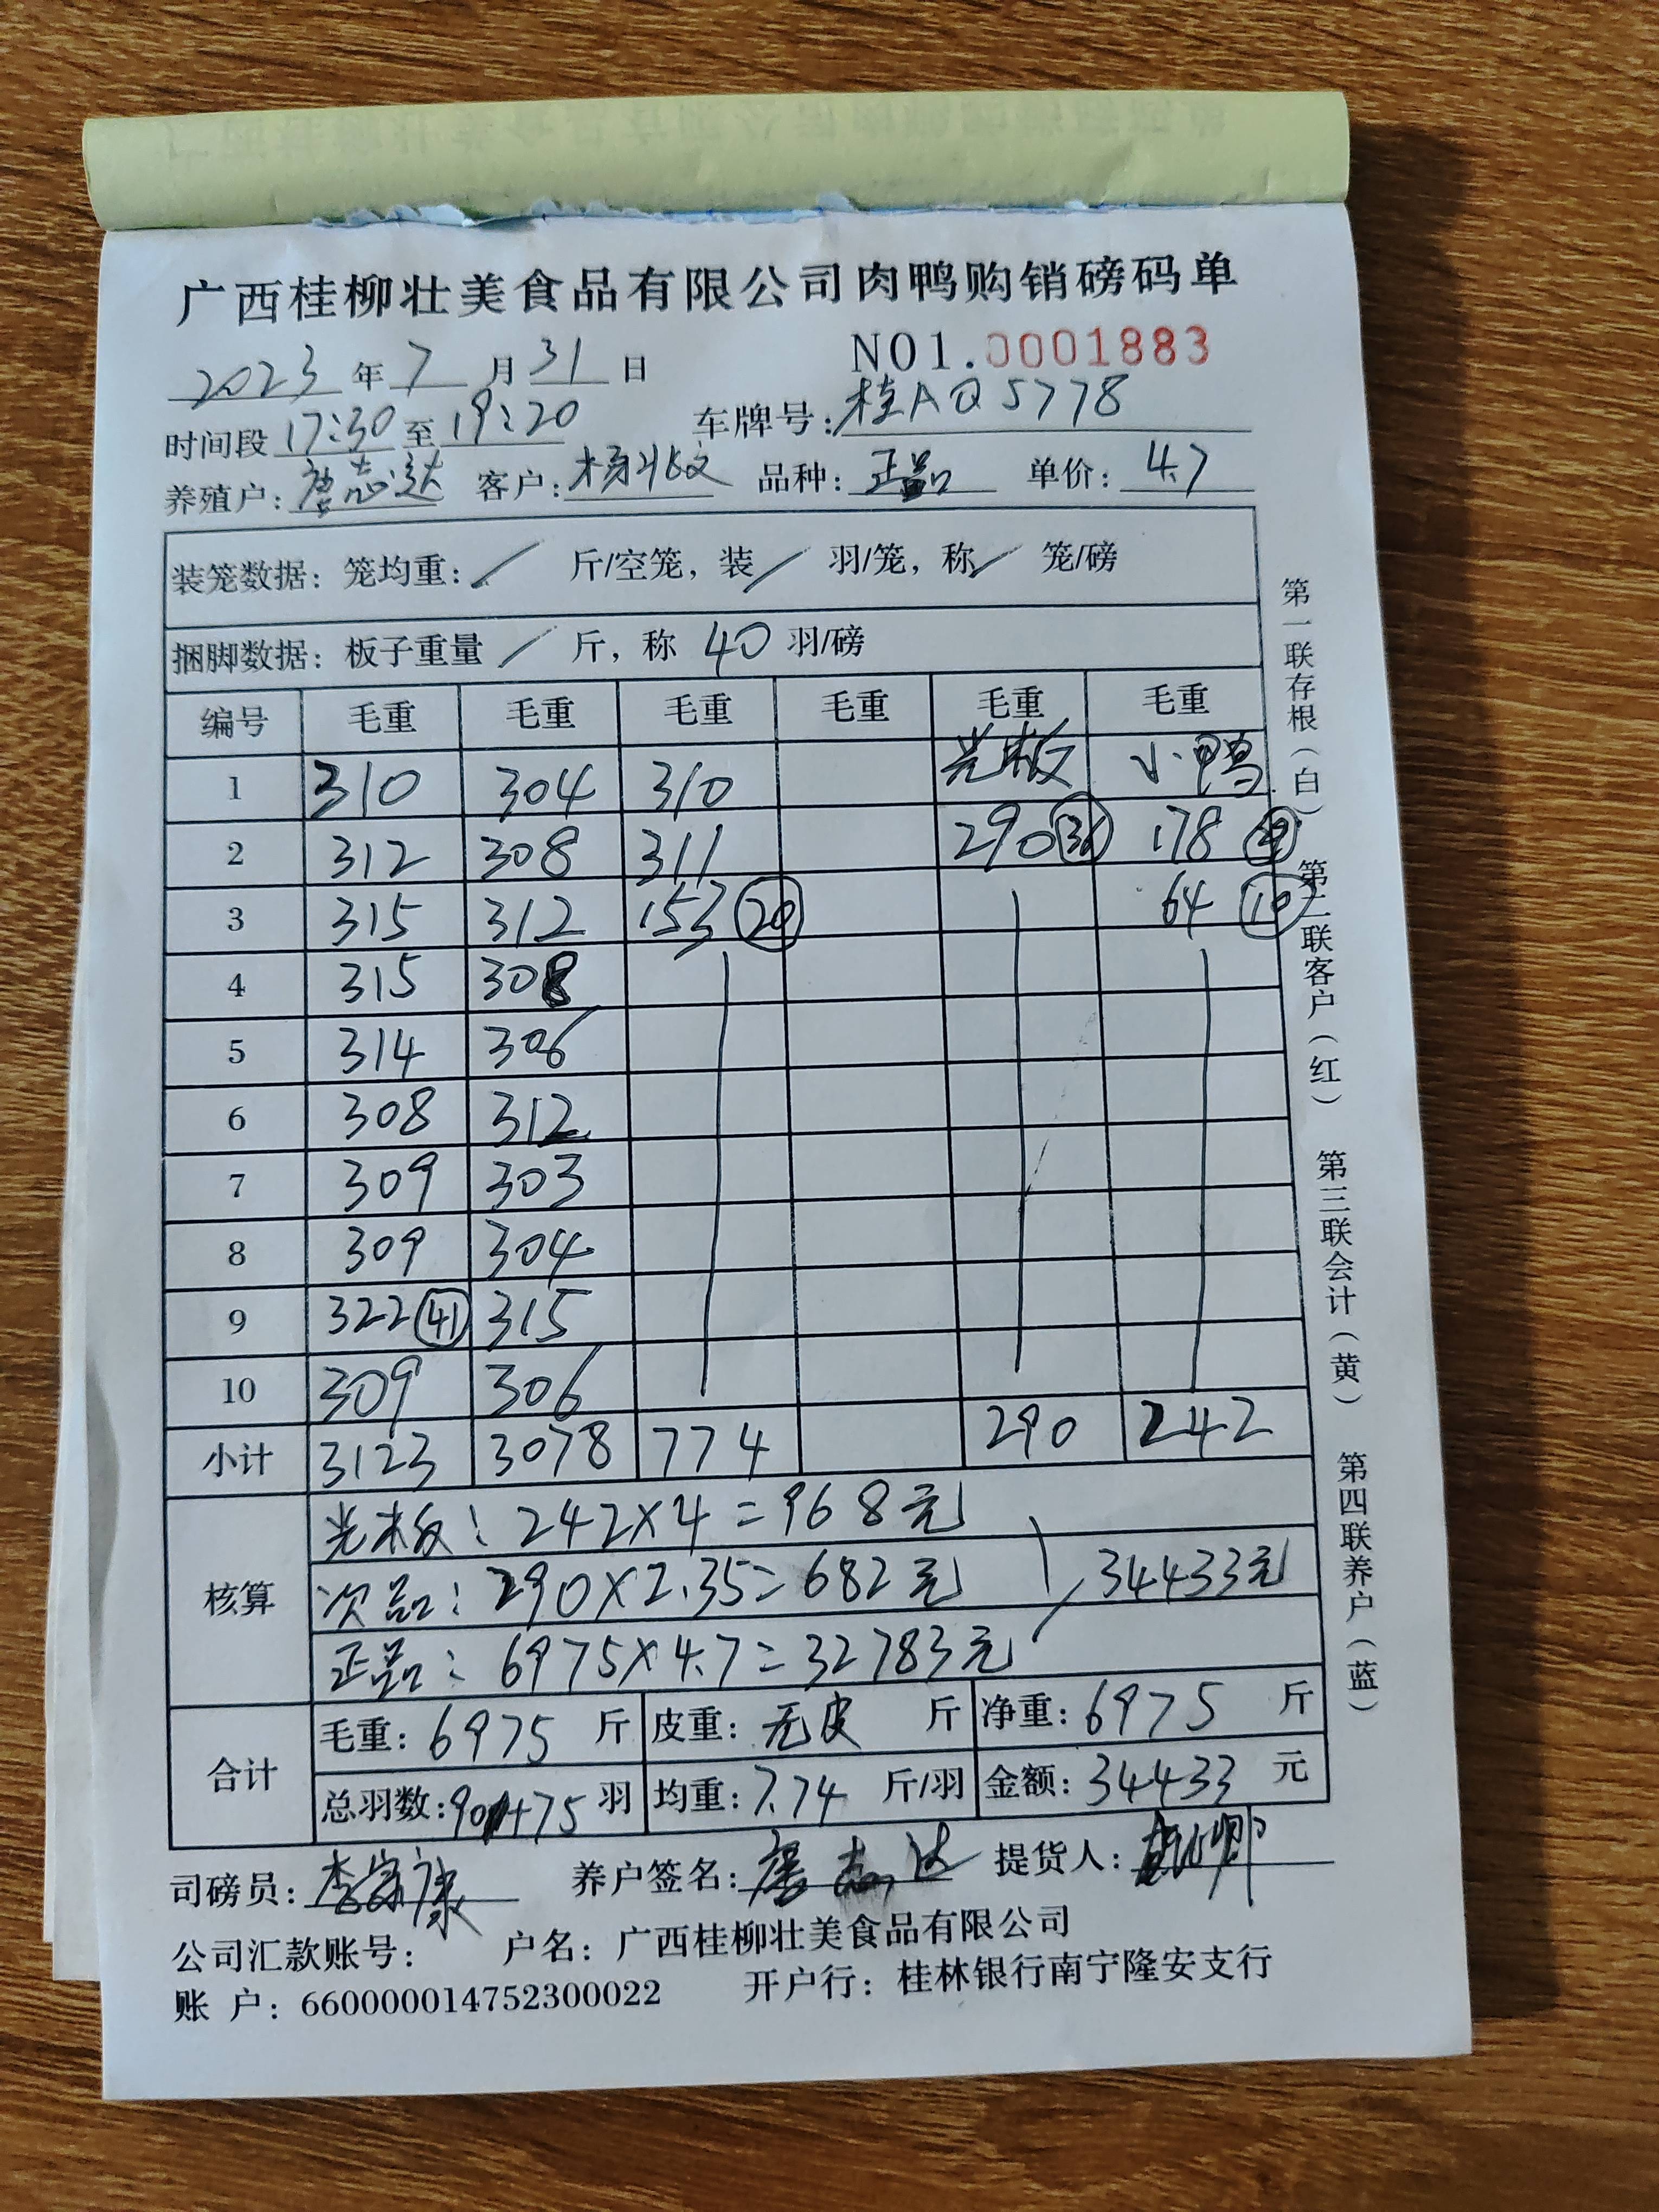 广西桂柳壮美食品有限公司肉鸭购销磅码单
NO1.0001883
2023年7月31日
时间段17:30至19:20 车牌号:桂AQ5778
养殖户:詹志达 客户: 品种:正品 单价:4.7
装笼数据:笼均重:/ 斤/空笼,装/ 羽/笼,称/ 笼/磅
捆脚数据:板子重量 / 斤,称 40 羽/磅
编号 毛重 毛重 毛重 毛重 毛重 毛重
1 310 304 310 光板 小鸭
2 312 308 311 290 178
3 315 312 153 20 64 10
4 315 308
5 314 306
6 308 312
7 309 303
8 309 304
9 322 41 315
10 309 306
小计 3123 3078 774 290 242
核算
光板:242×4=968元
次品:290×2.35=682元 34433元
正品:6975×4.7=32783元
合计
毛重:6975 斤 皮重:无皮 斤 净重:6975 斤
总羽数:901+75 羽 均重:7.74 斤/羽 金额:34433 元
司磅员:李家康 养户签名:詹志达 提货人:
公司汇款账号: 户名:广西桂柳壮美食品有限公司
账 户:660000014752300022 开户行:桂林银行南宁隆安支行
第一联存根(白)
第二联客户(红)
第三联会计(黄)
第四联养户(蓝)